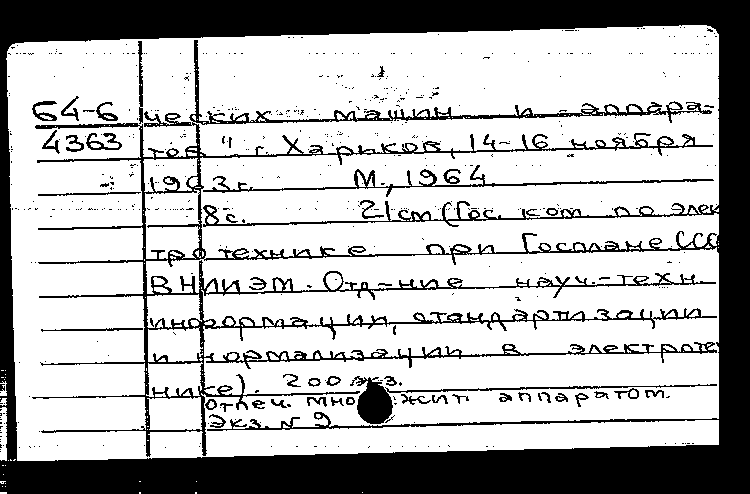 64-6 ческих машин и аппара-
4363 тов" г. Харьков, 14-16 ноября
1963г. М., 1964.
8с. 21cm (Гос. ком. по элек
тротехнике при Госплане ССС
ВНИИЭМ. Отд-ние науч.-техн.
информации, стандартизации
и нормализации в электроте
нике). 200 экз.
Отпеч. множит. аппаратом.
Экз. N 9